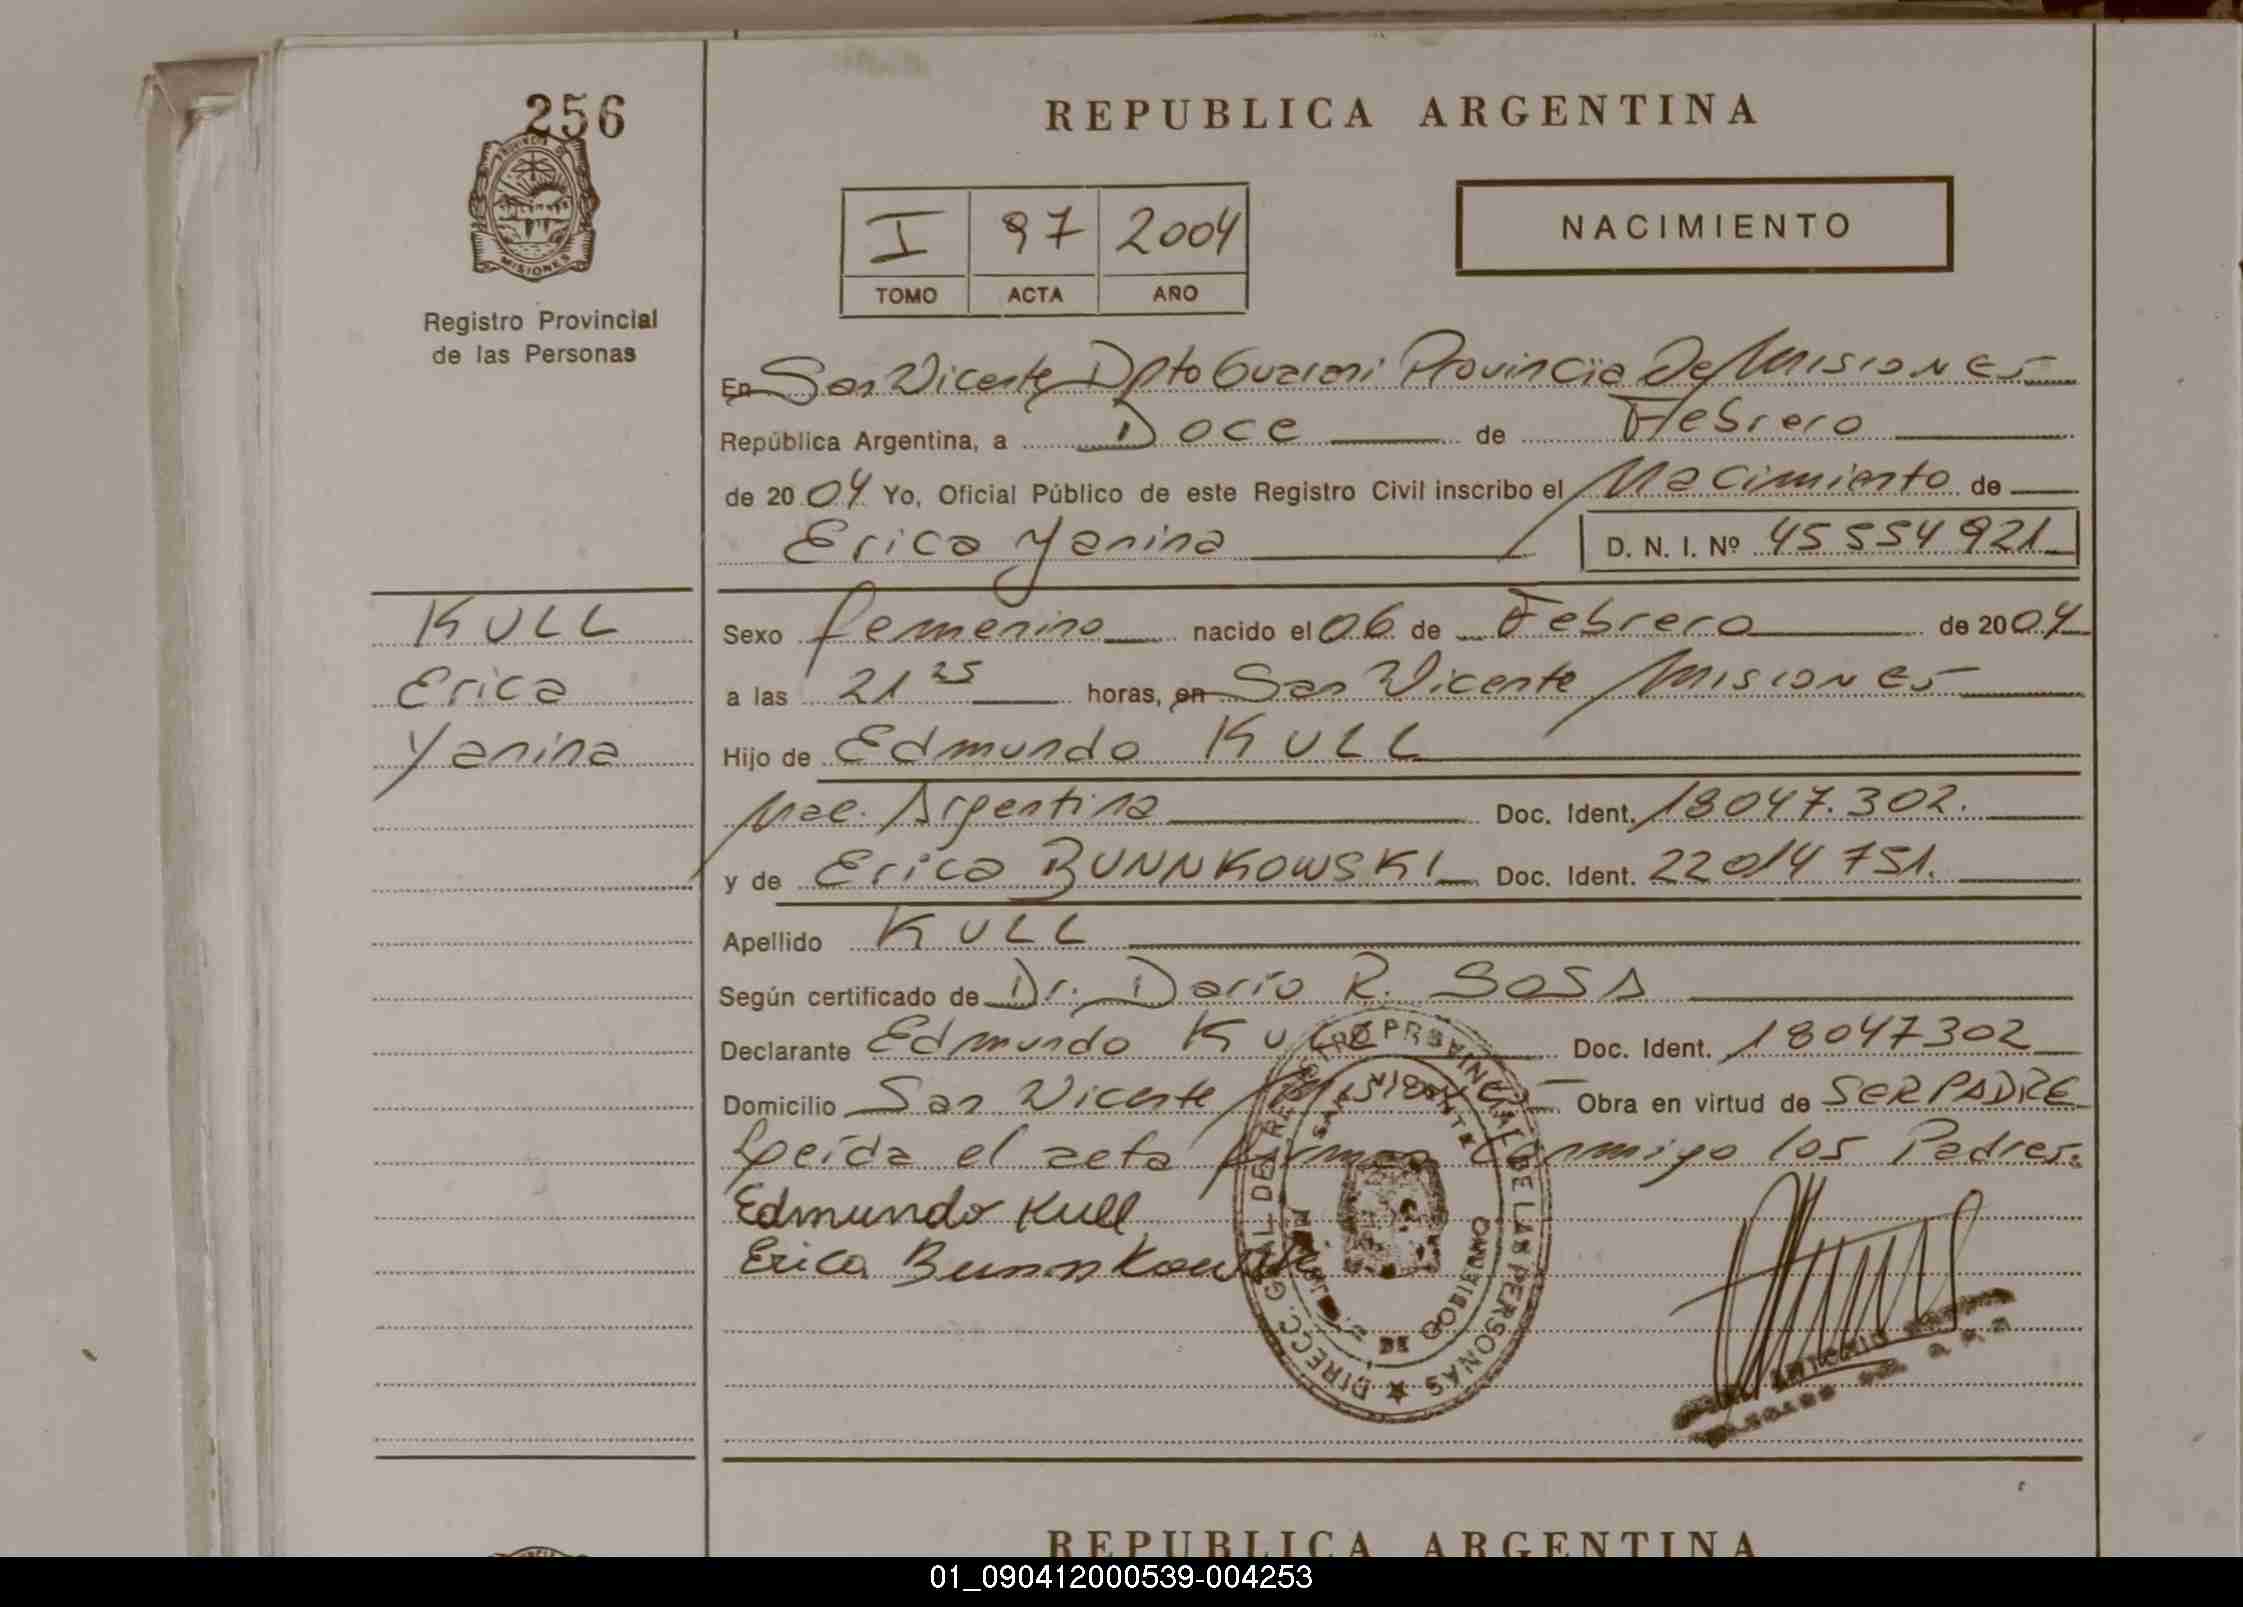 256
PROVINCIA DE
MISIONES
Registro Provincial
de las Personas
REPUBLICA ARGENTINA
I 97 2004
TOMO ACTA AÑO
NACIMIENTO
En San Vicente Dpto Guarani Provincia De Misiones
República Argentina, a Doce de Febrero
de 2004 Yo, Oficial Público de este Registro Civil inscribo el Nacimiento de
Erica Yanina D. N. I. Nº 45554921
KULL
Erica
Yanina
Sexo femenino nacido el 06 de Febrero de 2004
a las 21 25 horas, en San Vicente Misiones
Hijo de Edmundo KULL
Nac. Argentina Doc. Ident. 18047.302.
y de Erica BUNNKOWSKI Doc. Ident. 22014751.
Apellido KULL
Según certificado de Dr. Dario R. SOSA
Declarante Edmundo KULL Doc. Ident. 18047302
Domicilio San Vicente Misiones Obra en virtud de SER PADRE
Leída el acta firman Conmigo los Padres.
Edmundo Kull
Erica Bunnkowski
DIRECC. GRAL DE REGISTRO PROVINCIAL DE LAS PERSONAS
SAN VICENTE
DE GOBIERNO
ANTONIO
REPUBLICA ARGENTINA
01_090412000539-004253